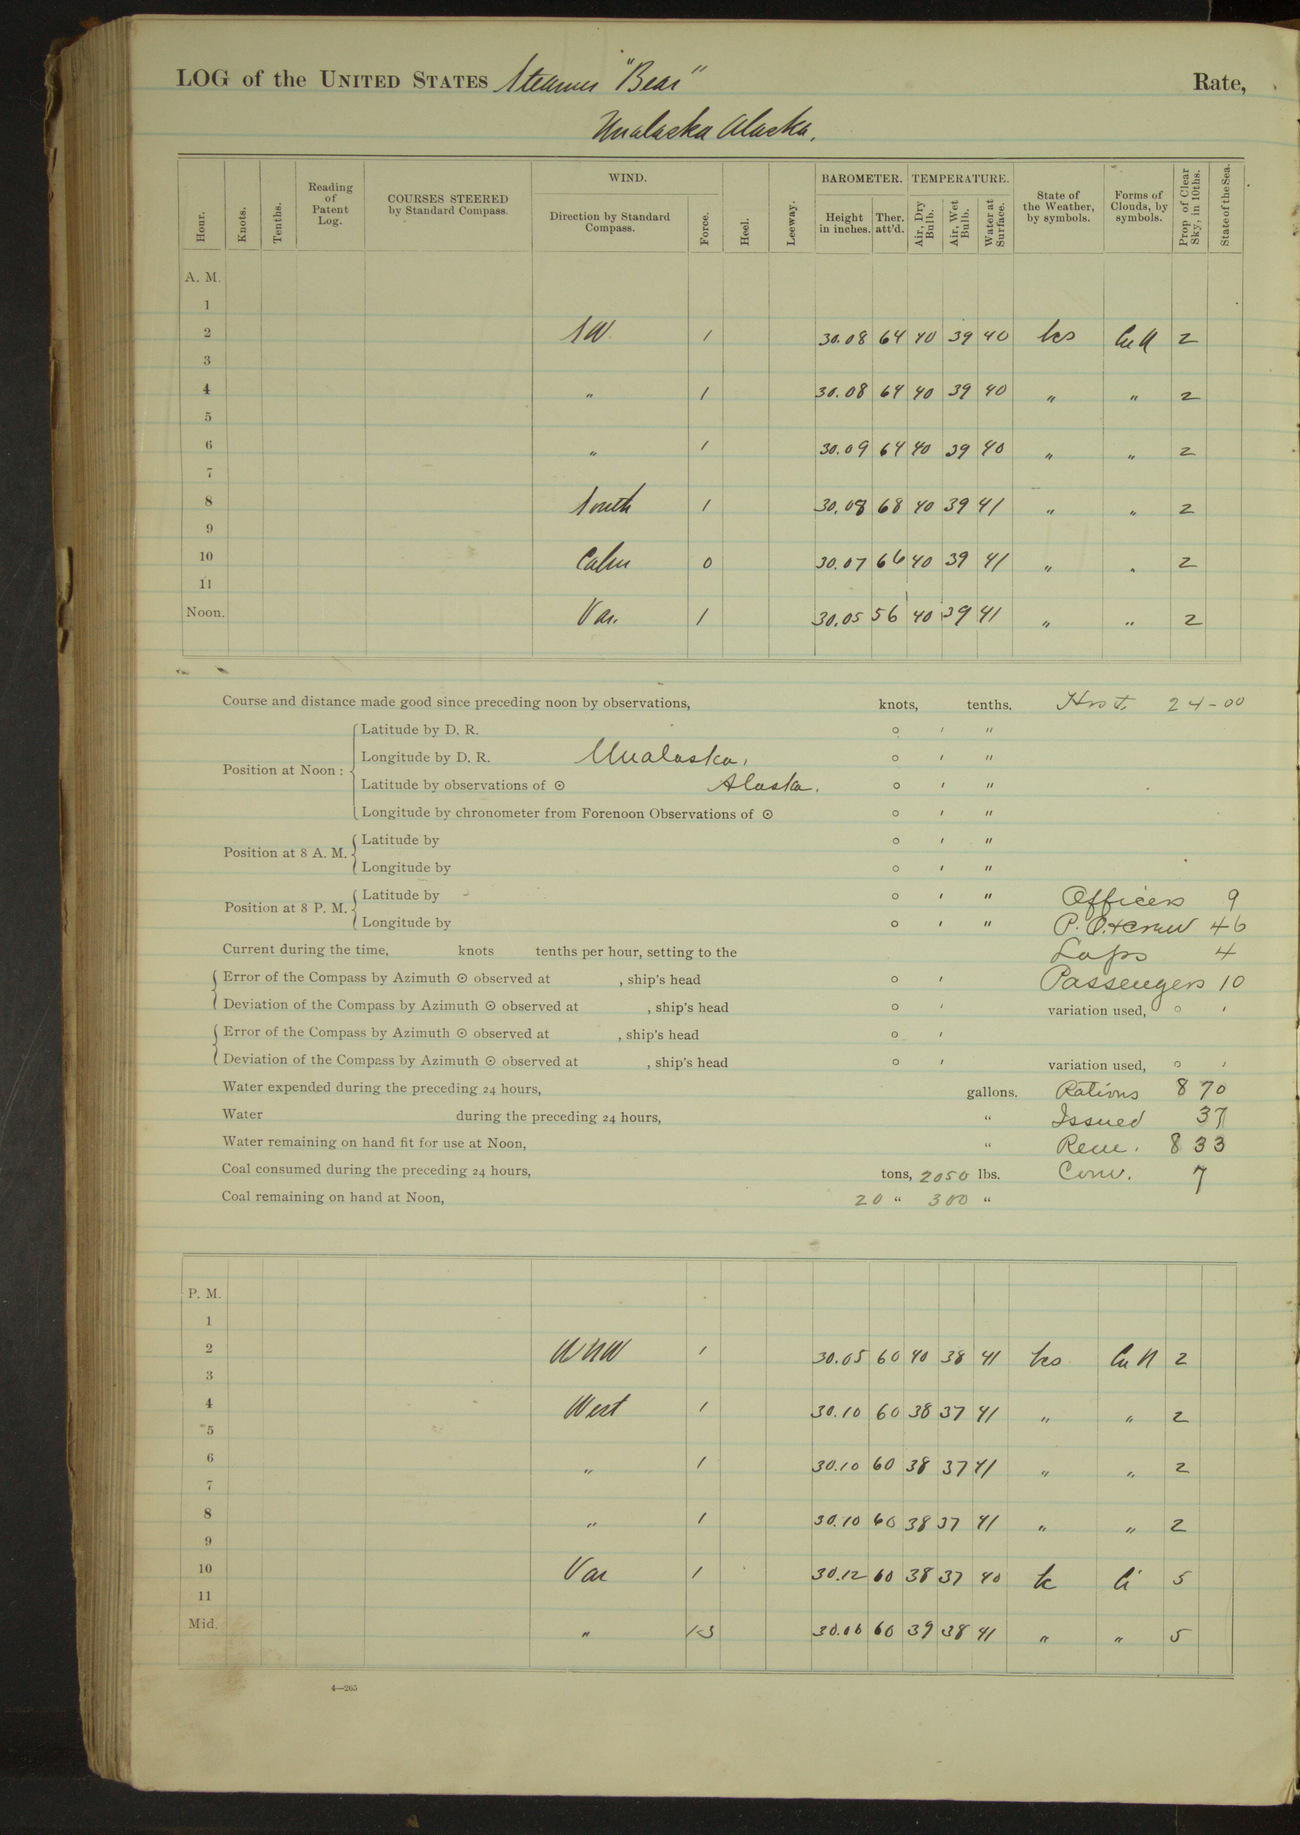 LOG of the UNITED STATES Steamer "Bear" Rate,
Unalaska Alaska.
Hour. Knots. Tenths. Reading of Patent Log. COURSES STEERED by Standard Compass. WIND. Direction by Standard Compass. Force. Heel. Leeway. BAROMETER. Height in inches. Ther. att'd. TEMPERATURE. Air, Dry Bulb. Air, Wet Bulb. Water at Surface. State of the Weather, by symbols. Forms of Clouds, by symbols. Prop. of Clear Sky, in 10ths. State of the Sea.
A. M.
1
2 SW 1 30.08 64 40 39 40 bcs Cu N 2
3
4 " 1 30.08 64 40 39 40 " " 2
5
6 " 1 30.09 64 40 39 40 " " 2
7
8 South 1 30.08 68 40 39 41 " " 2
9
10 Calm 0 30.07 66 40 39 41 " " 2
11
Noon. Var. 1 30.05 56 40 39 41 " " 2
Course and distance made good since preceding noon by observations, knots, tenths. 24-00
Position at Noon:
Latitude by D. R. ° ′ ″
Longitude by D. R. Unalaska, ° ′ ″
Latitude by observations of ☉ Alaska. ° ′ ″
Longitude by chronometer from Forenoon Observations of ☉ ° ′ ″
Position at 8 A. M. Latitude by ° ′ ″
Longitude by ° ′ ″
Position at 8 P. M. Latitude by ° ′ ″ Officers 9
Longitude by ° ′ ″ P. O. + Crew 46
Current during the time, knots tenths per hour, setting to the Laps 4
Error of the Compass by Azimuth ☉ observed at , ship's head ° ′ Passengers 10
Deviation of the Compass by Azimuth ☉ observed at , ship's head ° ′ variation used, ° ′
Error of the Compass by Azimuth ☉ observed at , ship's head ° ′
Deviation of the Compass by Azimuth ☉ observed at , ship's head ° ′ variation used, ° ′
Water expended during the preceding 24 hours, gallons. Rations 870
Water during the preceding 24 hours, " Issued 37
Water remaining on hand fit for use at Noon, " Rem. 833
Coal consumed during the preceding 24 hours, tons, 2050 lbs. Com. 7
Coal remaining on hand at Noon, 20 " 300 "
P. M.
1
2 WNW 1 30.05 60 40 38 41 bcs Cu N 2
3
4 West 1 30.10 60 38 37 41 " " 2
5
6 " 1 30.10 60 38 37 41 " " 2
7
8 " 1 30.10 60 38 37 41 " " 2
9
10 Var 1 30.12 60 38 37 40 bc Ci 5
11
Mid. " 1-3 30.06 60 39 38 41 " " 5
4—265